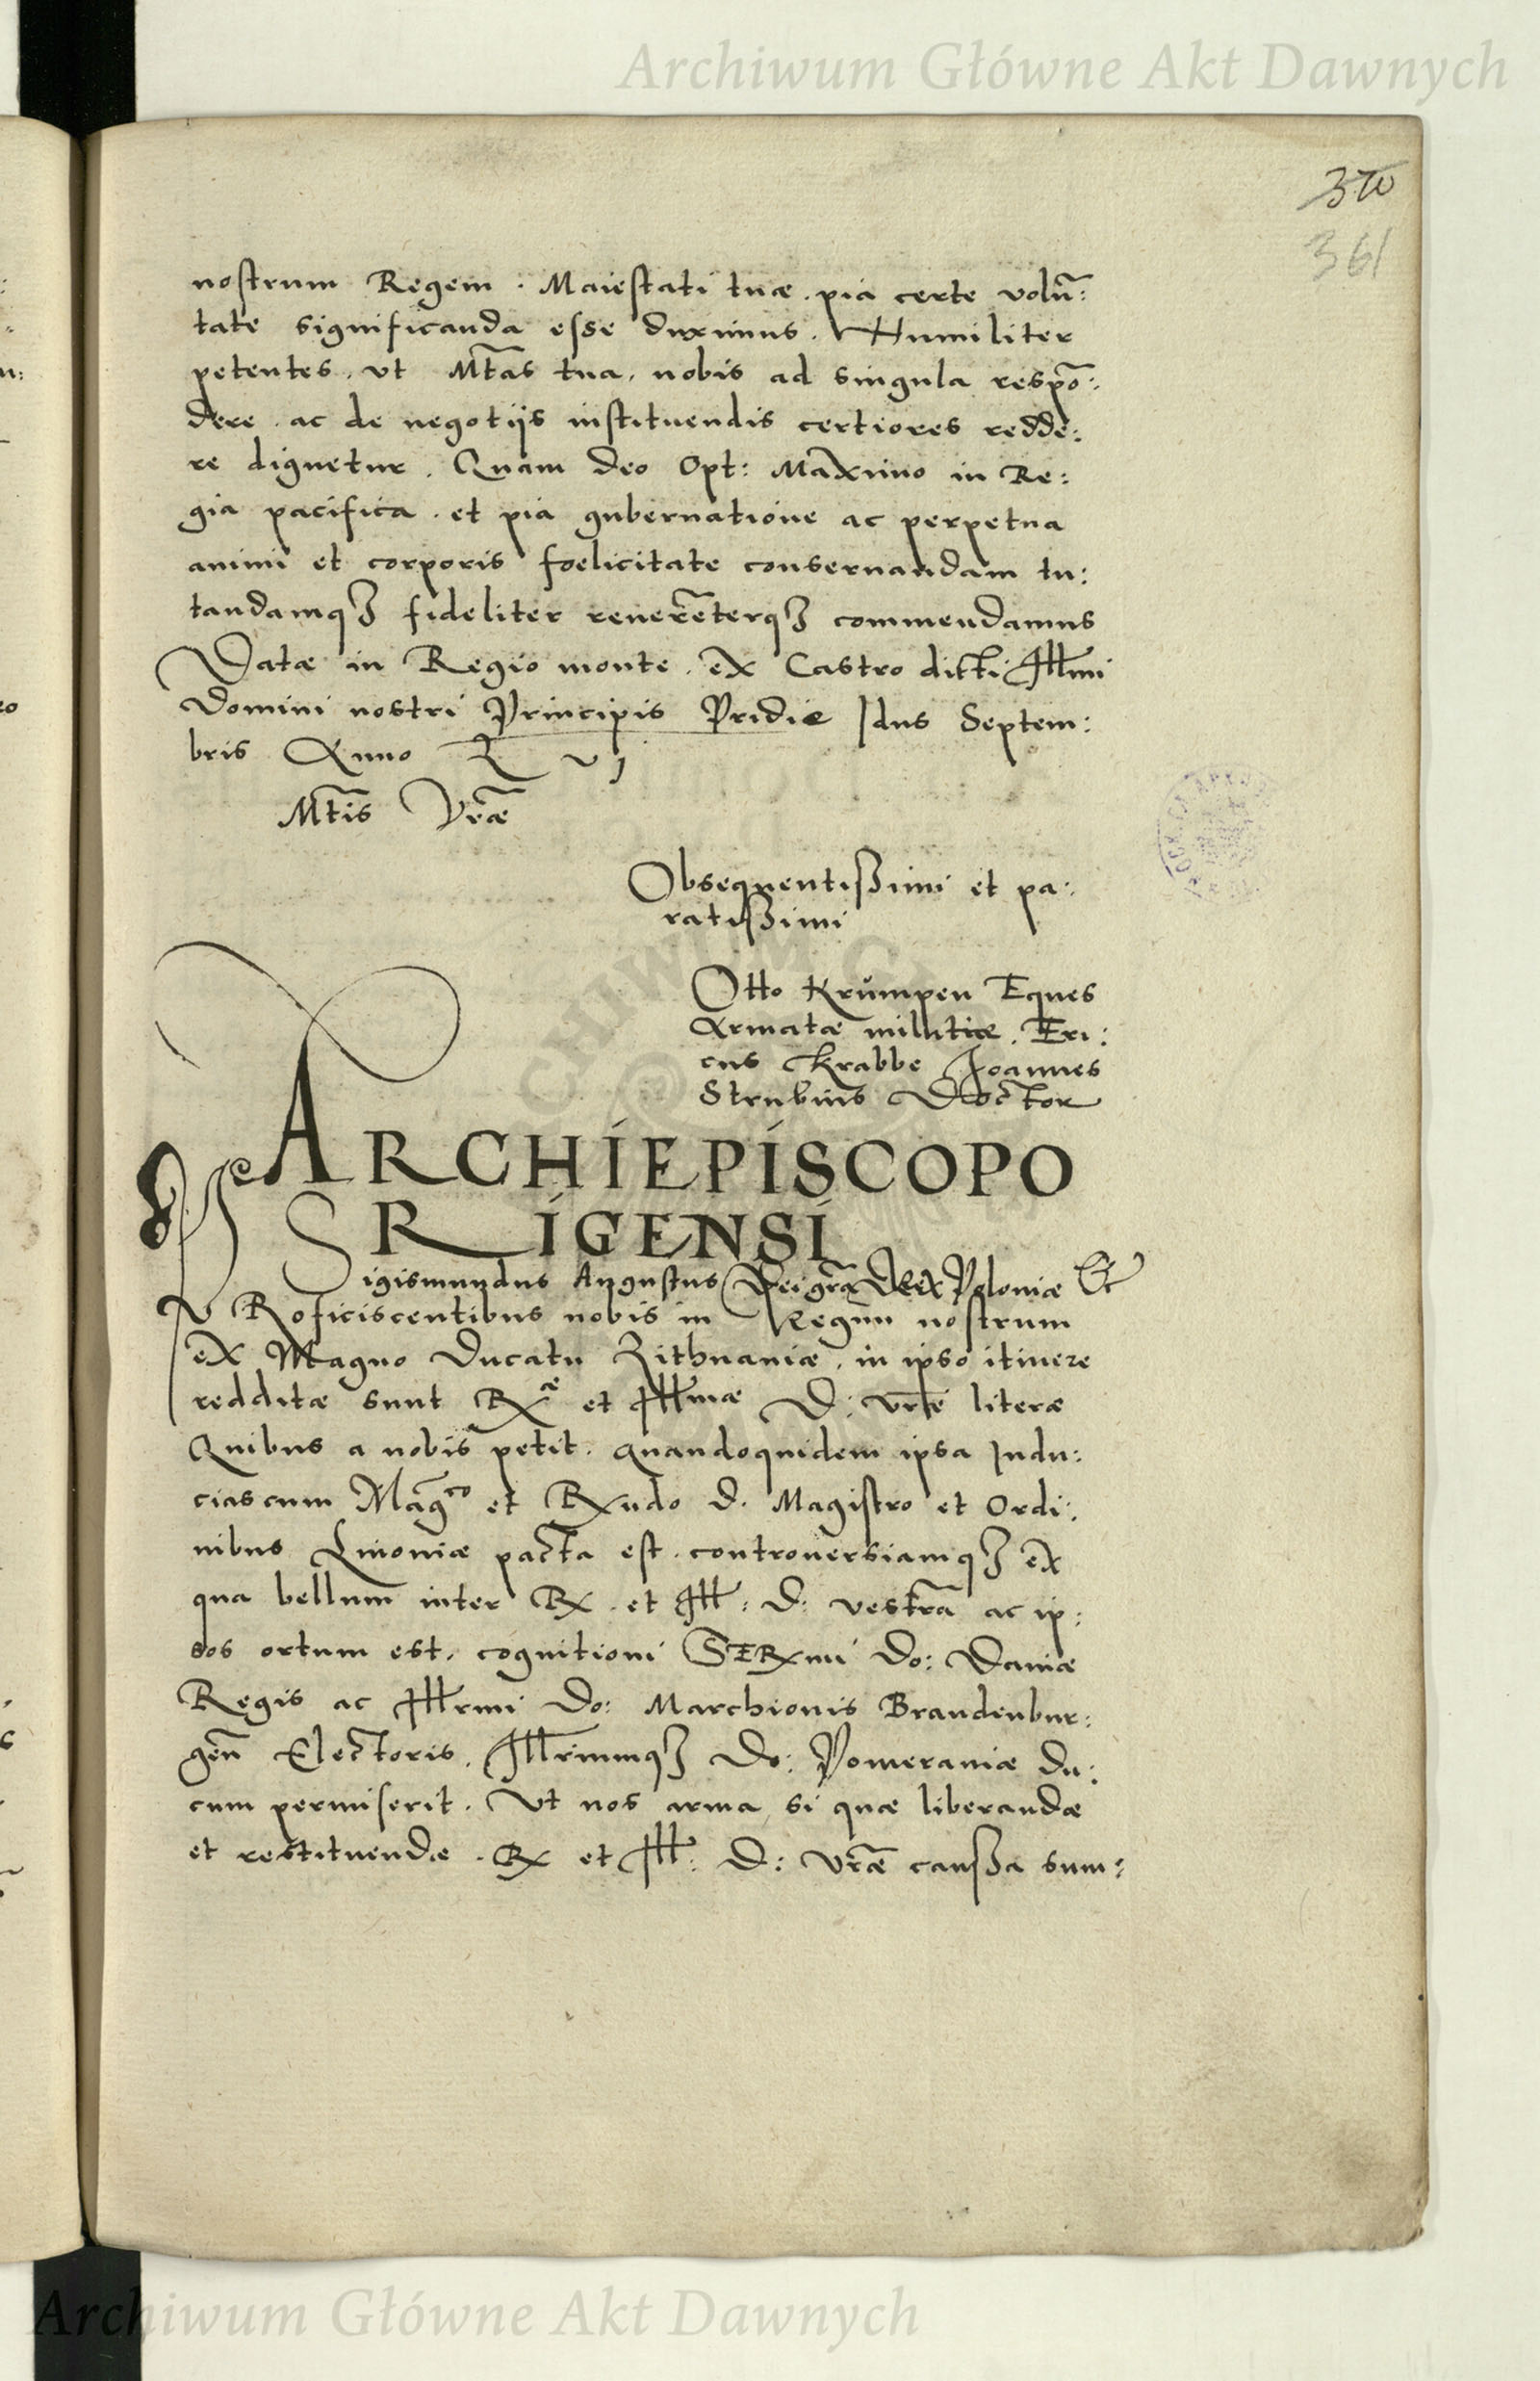 Archiwum Główne Akt Dawnych
370
361
nostrum Regem . Maiestati tuæ . pia certe volū:
tate significanda esse duximus . Humiliter
petentes . vt Mtas tua . nobis ad singula respō:
dere . ac de negotijs instituendis certiores redde:
re dignetur . Quam Deo Opt: Maximo in Re:
gia pacifica . et pia gubernatione ac perpetua
animi et corporis foelicitate conseruandam tu:
tandamqȝ fideliter reuerēterqȝ commendamus
Datæ in Regio monte . ex Castro dicti Illmi
Domini nostri Principis Pridie Idus Septem:
bris Anno L vj
Mtis Vræ
Obsequentißimi et pa:
ratißimi
Otto Krůmpen Eques
Armatæ militiæ . Eri:
cus Krabbe Joannes
Strubius Doctor
ARCHIEPISCOPO
RIGENSI
Sigismundus Augustus Dei gra Rex Poloniæ Et
PRoficiscentibus nobis in Regnu nostrum
ex Magno Ducatu Lithuaniæ . in ipso itinere
redditæ sunt Rx^æ et Illmæ D: vræ literæ
Quibus a nobis petit . quandoquidem ipsa Indu:
cias cum Mag^co et Rxndo d. Magistro et Ordi:
nibus Liuoniæ pacta est . controuersiamqȝ ex
qua bellum inter Rx . et Ill: D: vestra ac ip:
sos ortum est . cognitioni SERxmi Do: Daniæ
Regis ac Illrmi Do: Marchionis Brandenbur:
gen Electoris . Illrimumqȝ Do: Pomeraniæ du:
cum permiserit . Vt nos arma si quæ liberandæ
et restituendæ . Rx et Ill: D: vræ caußa sum:
Archiwum Główne Akt Dawnych